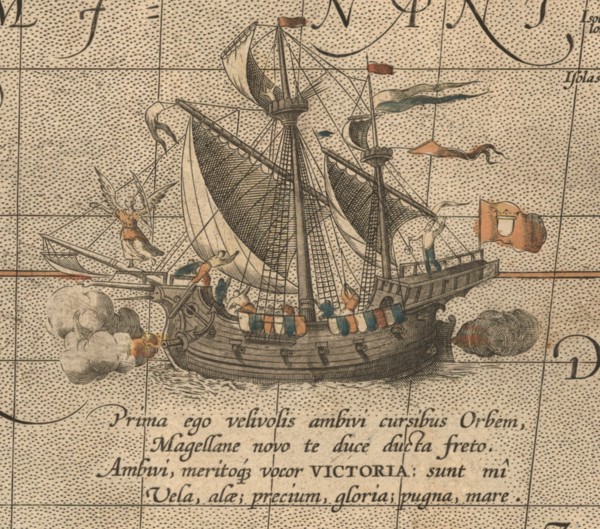 N A N I
Isolas
Prima ego velivolis ambivi cursibus Orbem,
Magellane novo te duce ducta freto.
Ambivi, meritoq₃ vocor VICTORIA: sunt mî
Vela, alæ; precium, gloria; pugna, mare.